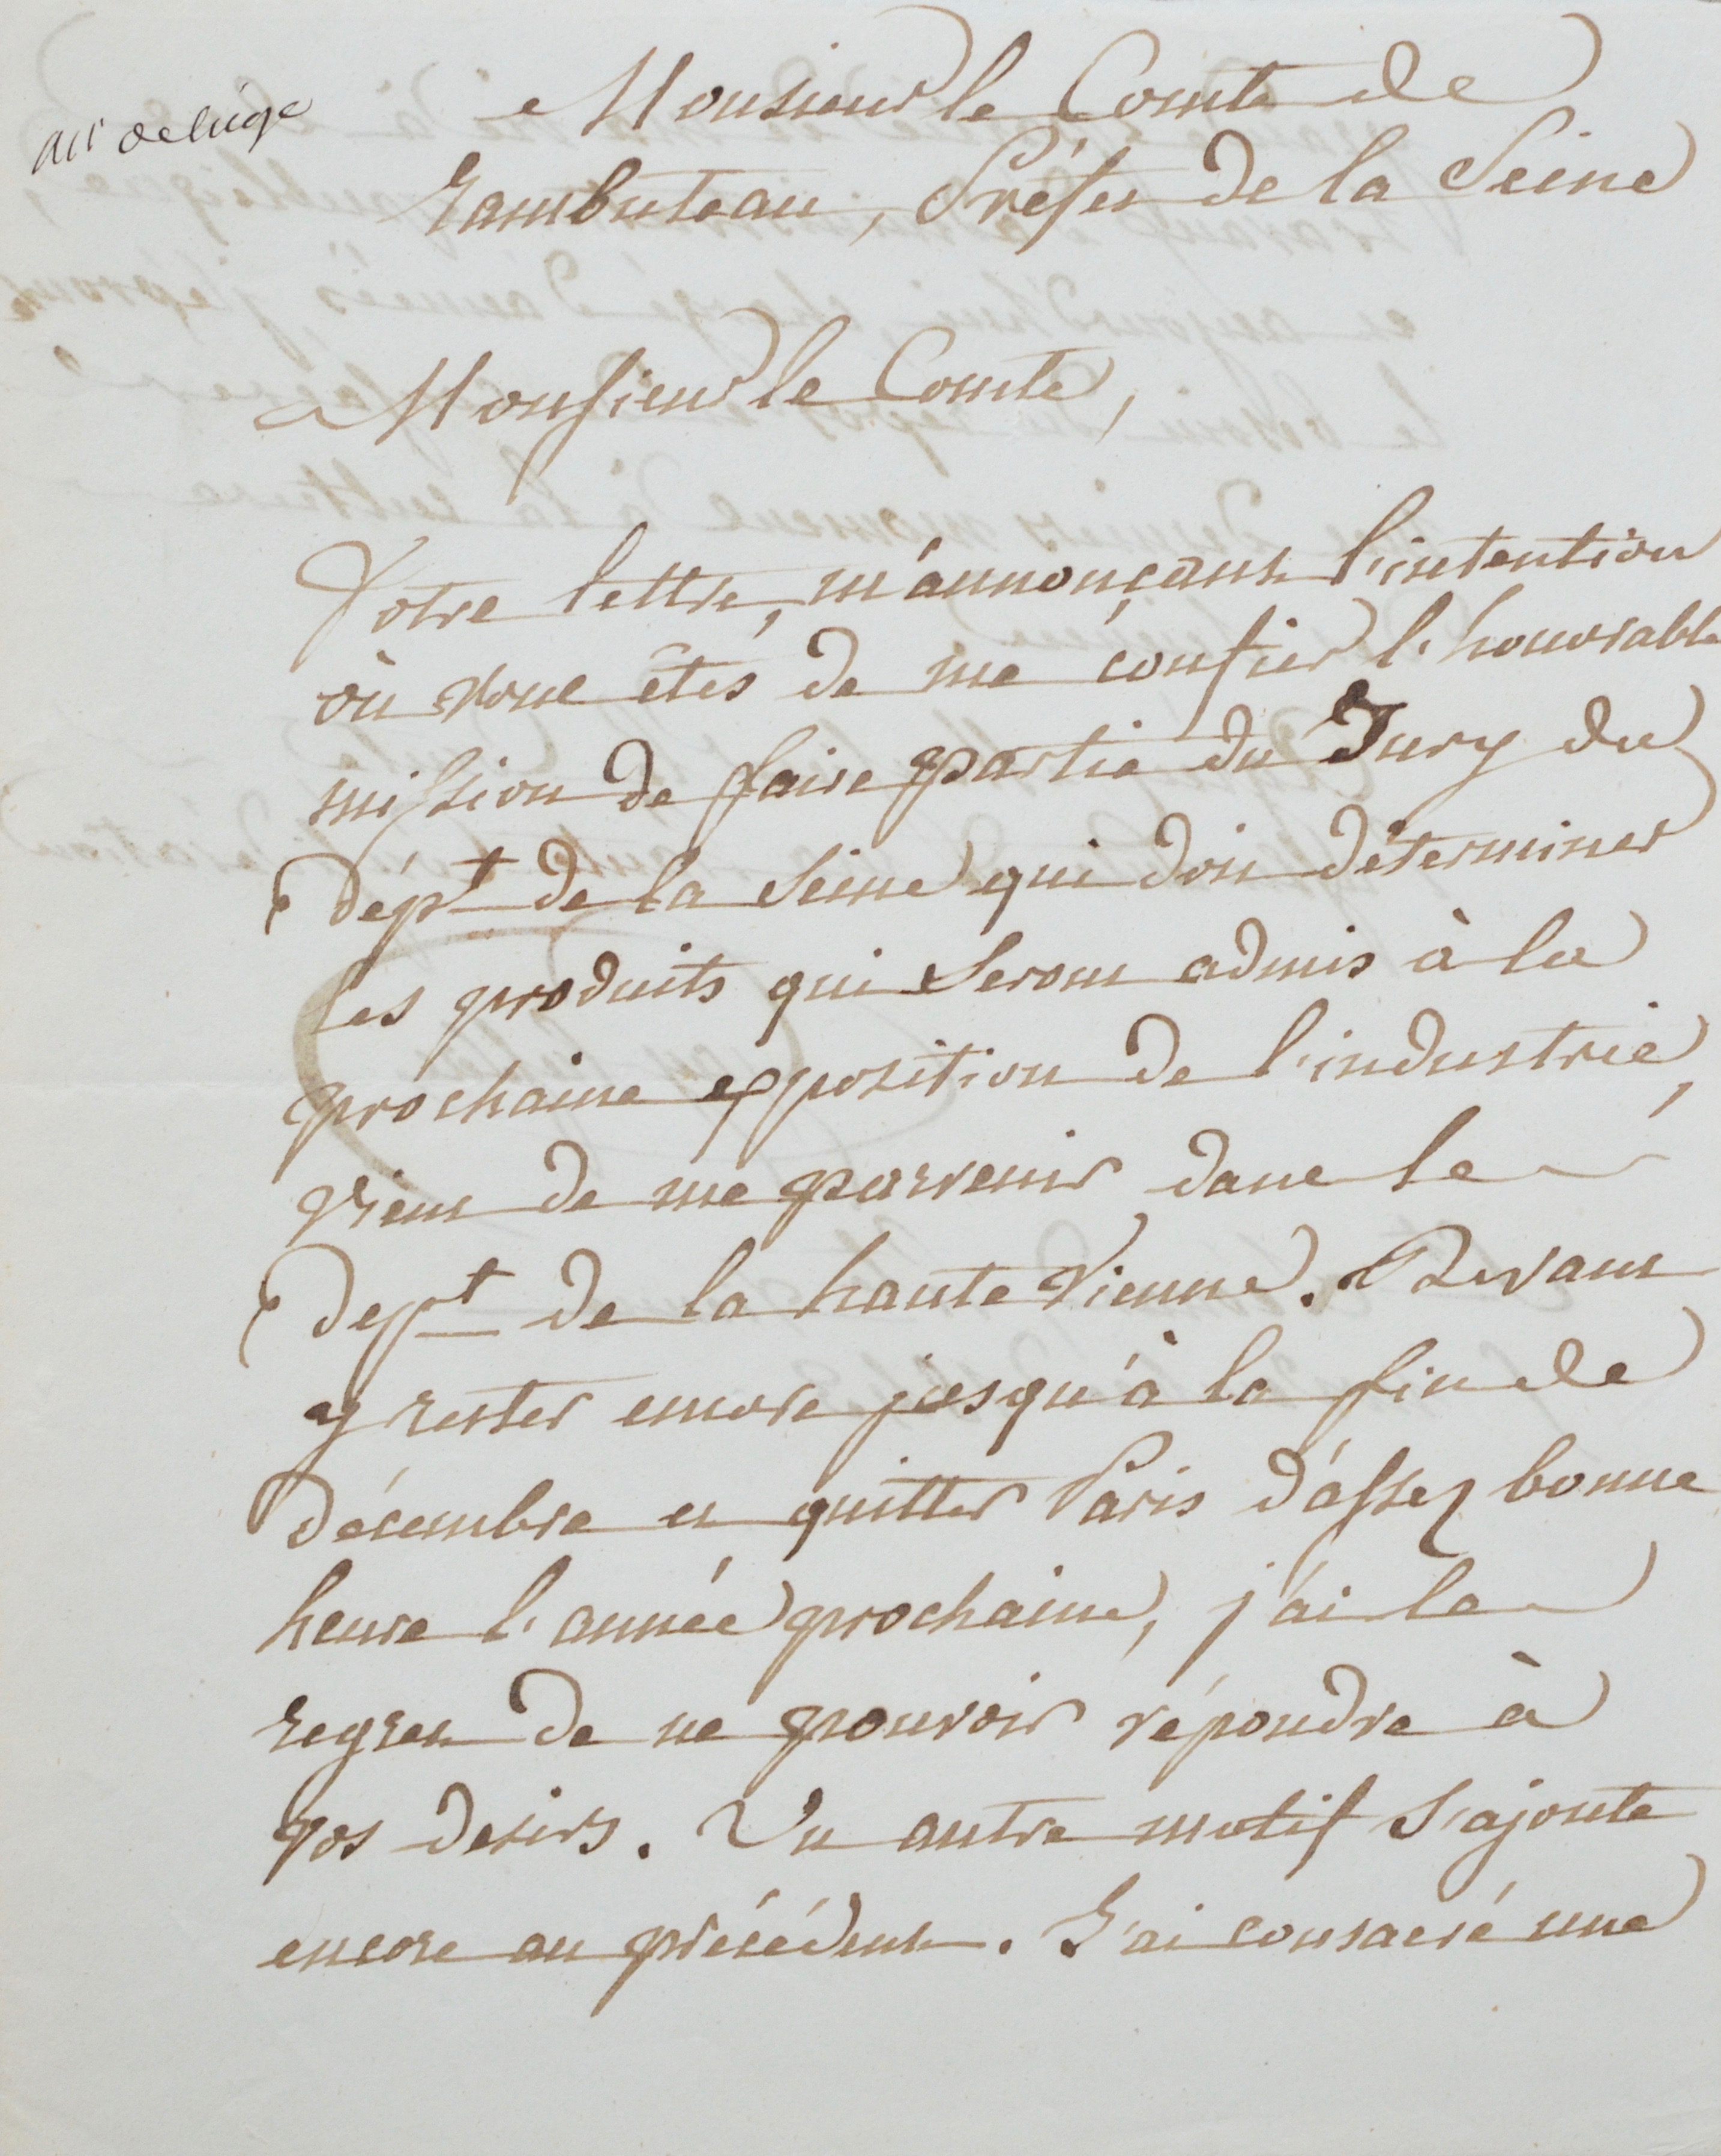 Monsieur le Comte de
Rambuteau, Préfet de la Seine
Monsieur le Comte,
Votre lettre, m'annonçant l'intention
où vous êtes de me confier l'honorable
mission de faire partie du Jury du
Dépt de la Seine qui doit déterminer
les produits qui seront admis à la
prochaine exposition de l'industrie,
vient de me parvenir dans le
Dept de la haute Vienne. Devant
y rester encore jusqu'à la fin de
décembre et quitter Paris d'assez bonne
heure l'année prochaine, j'ai le
regret de ne pouvoir répondre à
vos desirs. Un autre motif s'ajoute
encore au précédent. J'ai consacré une